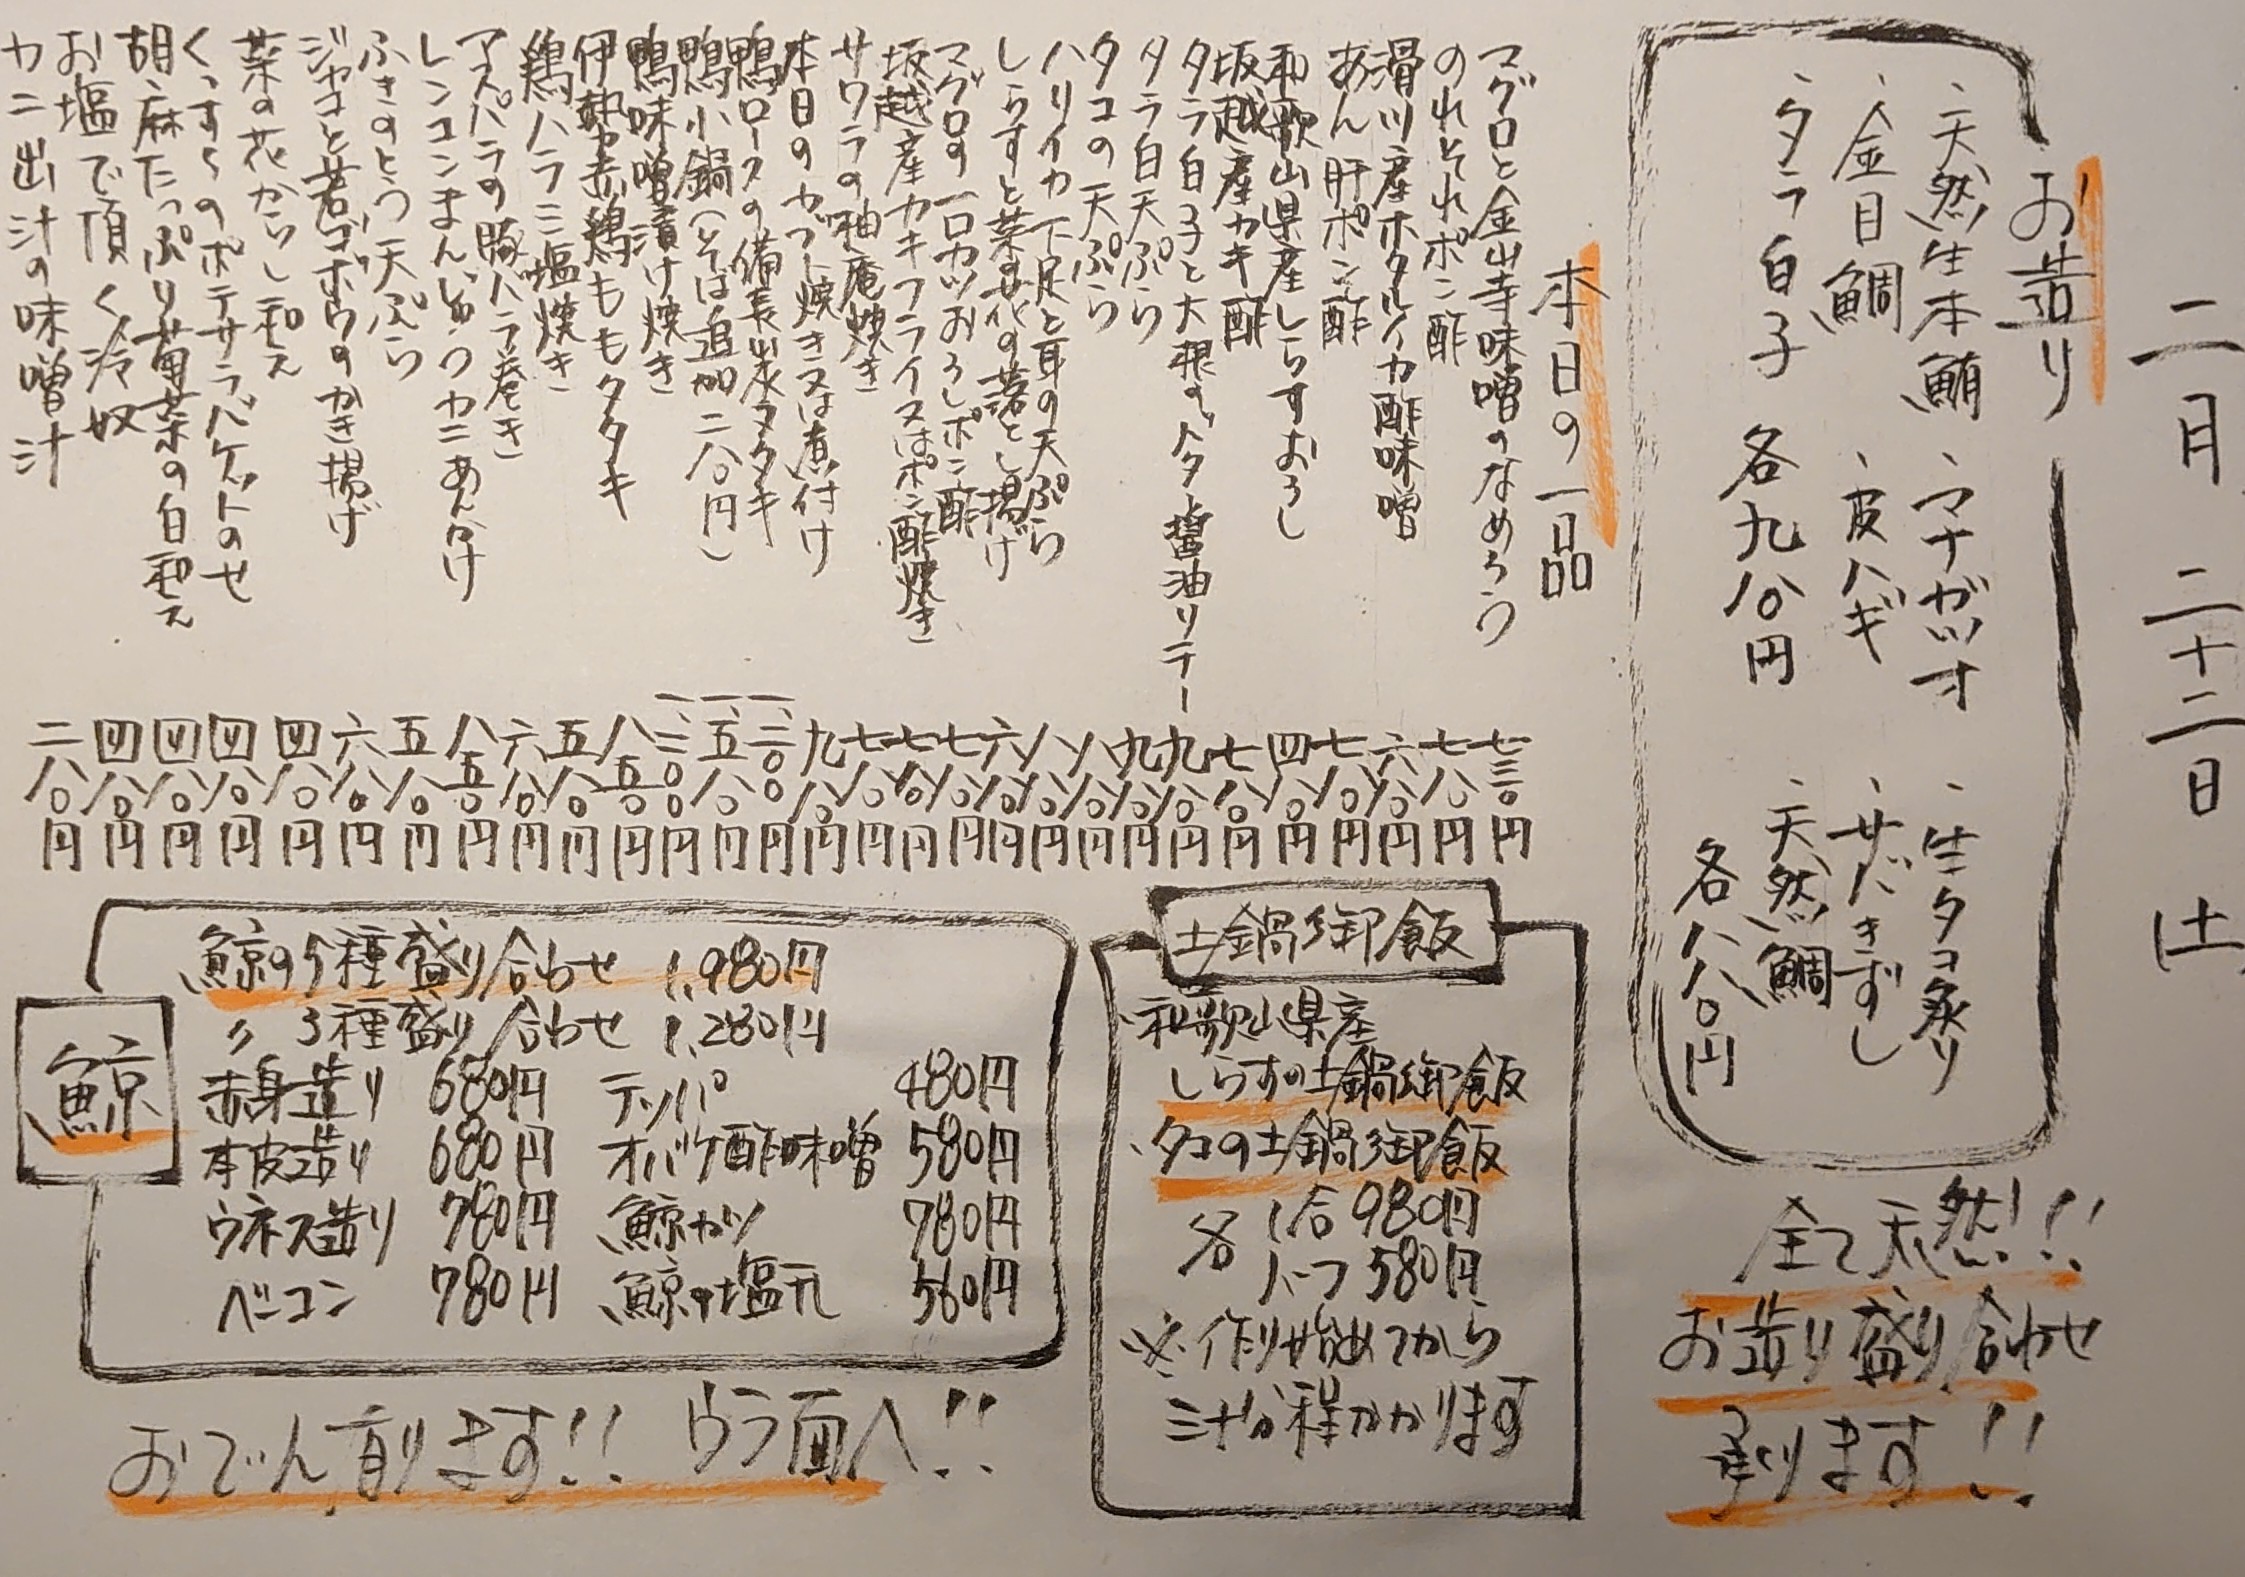 二月二十二日 土
お造り
・天然生本鮪 ・マナガツオ ・生タコ炙り
・金目鯛 ・皮ハギ ・サバきずし
・タラ白子 各九八〇円 ・天然鯛
各八八〇円
全て天然!!
お造り盛り合わせ
承ります!!
本日の一品
マグロと金山寺味噌のなめろう 七三〇円
のれそれポン酢 七八〇円
滑川産ホタルイカ酢味噌 六八〇円
あん肝ポン酢 七八〇円
和歌山県産しらすおろし 四八〇円
坂越産カキ酢 七八〇円
タラ白子と大根のバター醤油ソテー 九八〇円
タラ白天ぷら 九八〇円
タコの天ぷら 八八〇円
ハリイカ下足と耳の天ぷら 八八〇円
しらすと菜の花の落とし揚げ 六八〇円
マグロの一口カツおろしポン酢 七八〇円
坂越産カキフライ又はポン酢焼き 七八〇円
サワラの柚庵焼き 七八〇円
本日のカブト焼き又は煮付け 九八〇円
鴨ロースの備長炭タタキ 一、二〇〇円
鴨小鍋(そば追加二八〇円) 一、五八〇円
鴨味噌漬け焼き 一、二〇〇円
伊勢赤鶏ももタタキ 八五〇円
鶏ハラミ塩焼き 五八〇円
アスパラの豚バラ巻き 六八〇円
レンコンまんじゅうカニあんかけ 八五〇円
ふきのとう天ぷら 五八〇円
ジャコと若ゴボウのかき揚げ 六八〇円
菜の花からし和え 四八〇円
くっすぅのポテサラバケットのせ 四八〇円
胡麻たっぷり菊菜の白和え 四八〇円
お塩で頂く冷奴 四八〇円
カニ出汁の味噌汁 二八〇円
土鍋御飯
・和歌山県産
しらすの土鍋御飯
・タコの土鍋御飯
各 1合 980円
ハーフ 580円
※作り始めてから
三十分程かかります
鯨
鯨の5種盛り合わせ 1,980円
〃 3種盛り合わせ 1,280円
赤身造り 680円 テッパ 480円
本皮造り 680円 オバケ酢味噌 580円
ウネス造り 780円 鯨カツ 780円
ベーコン 780円 鯨の塩元 560円
おでん有ります!! ウラ面へ!!